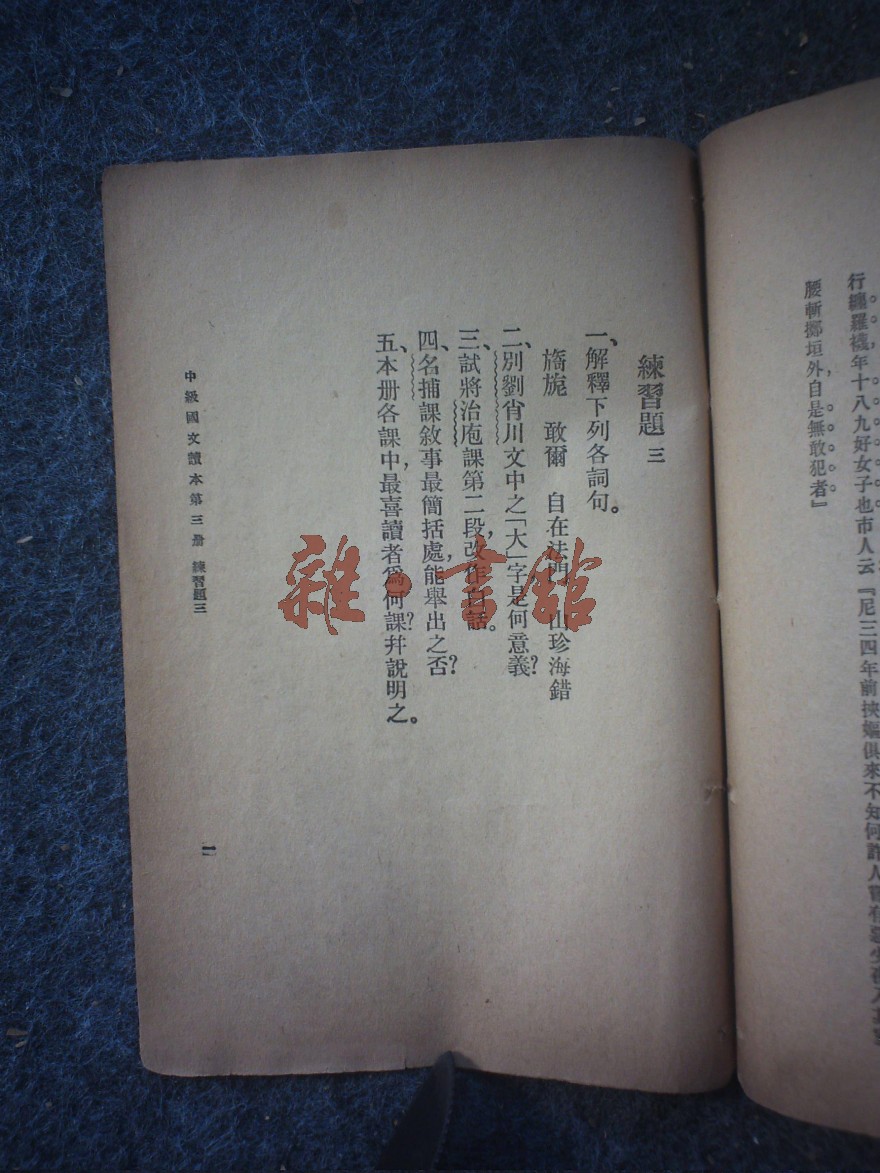 行纏羅襪年十八九好女子也市人云『尼三四年前挾嫗俱來不知何許人嘗有惡少夜入其室
腰斬擲垣外自是無敢犯者』
練習題 三
一、解釋下列各詞句。
旖旎 敢爾 自在法門 山珍海錯
二、別劉肖川文中之「大」字是何意義?
三、試將治庖課第二段,改作白話。
四、名捕課敘事最簡括處,能舉出之否?
五、本册各課中,最喜讀者爲何課?幷說明之。
中級國文讀本第三册 練習題三
一
雜·書館